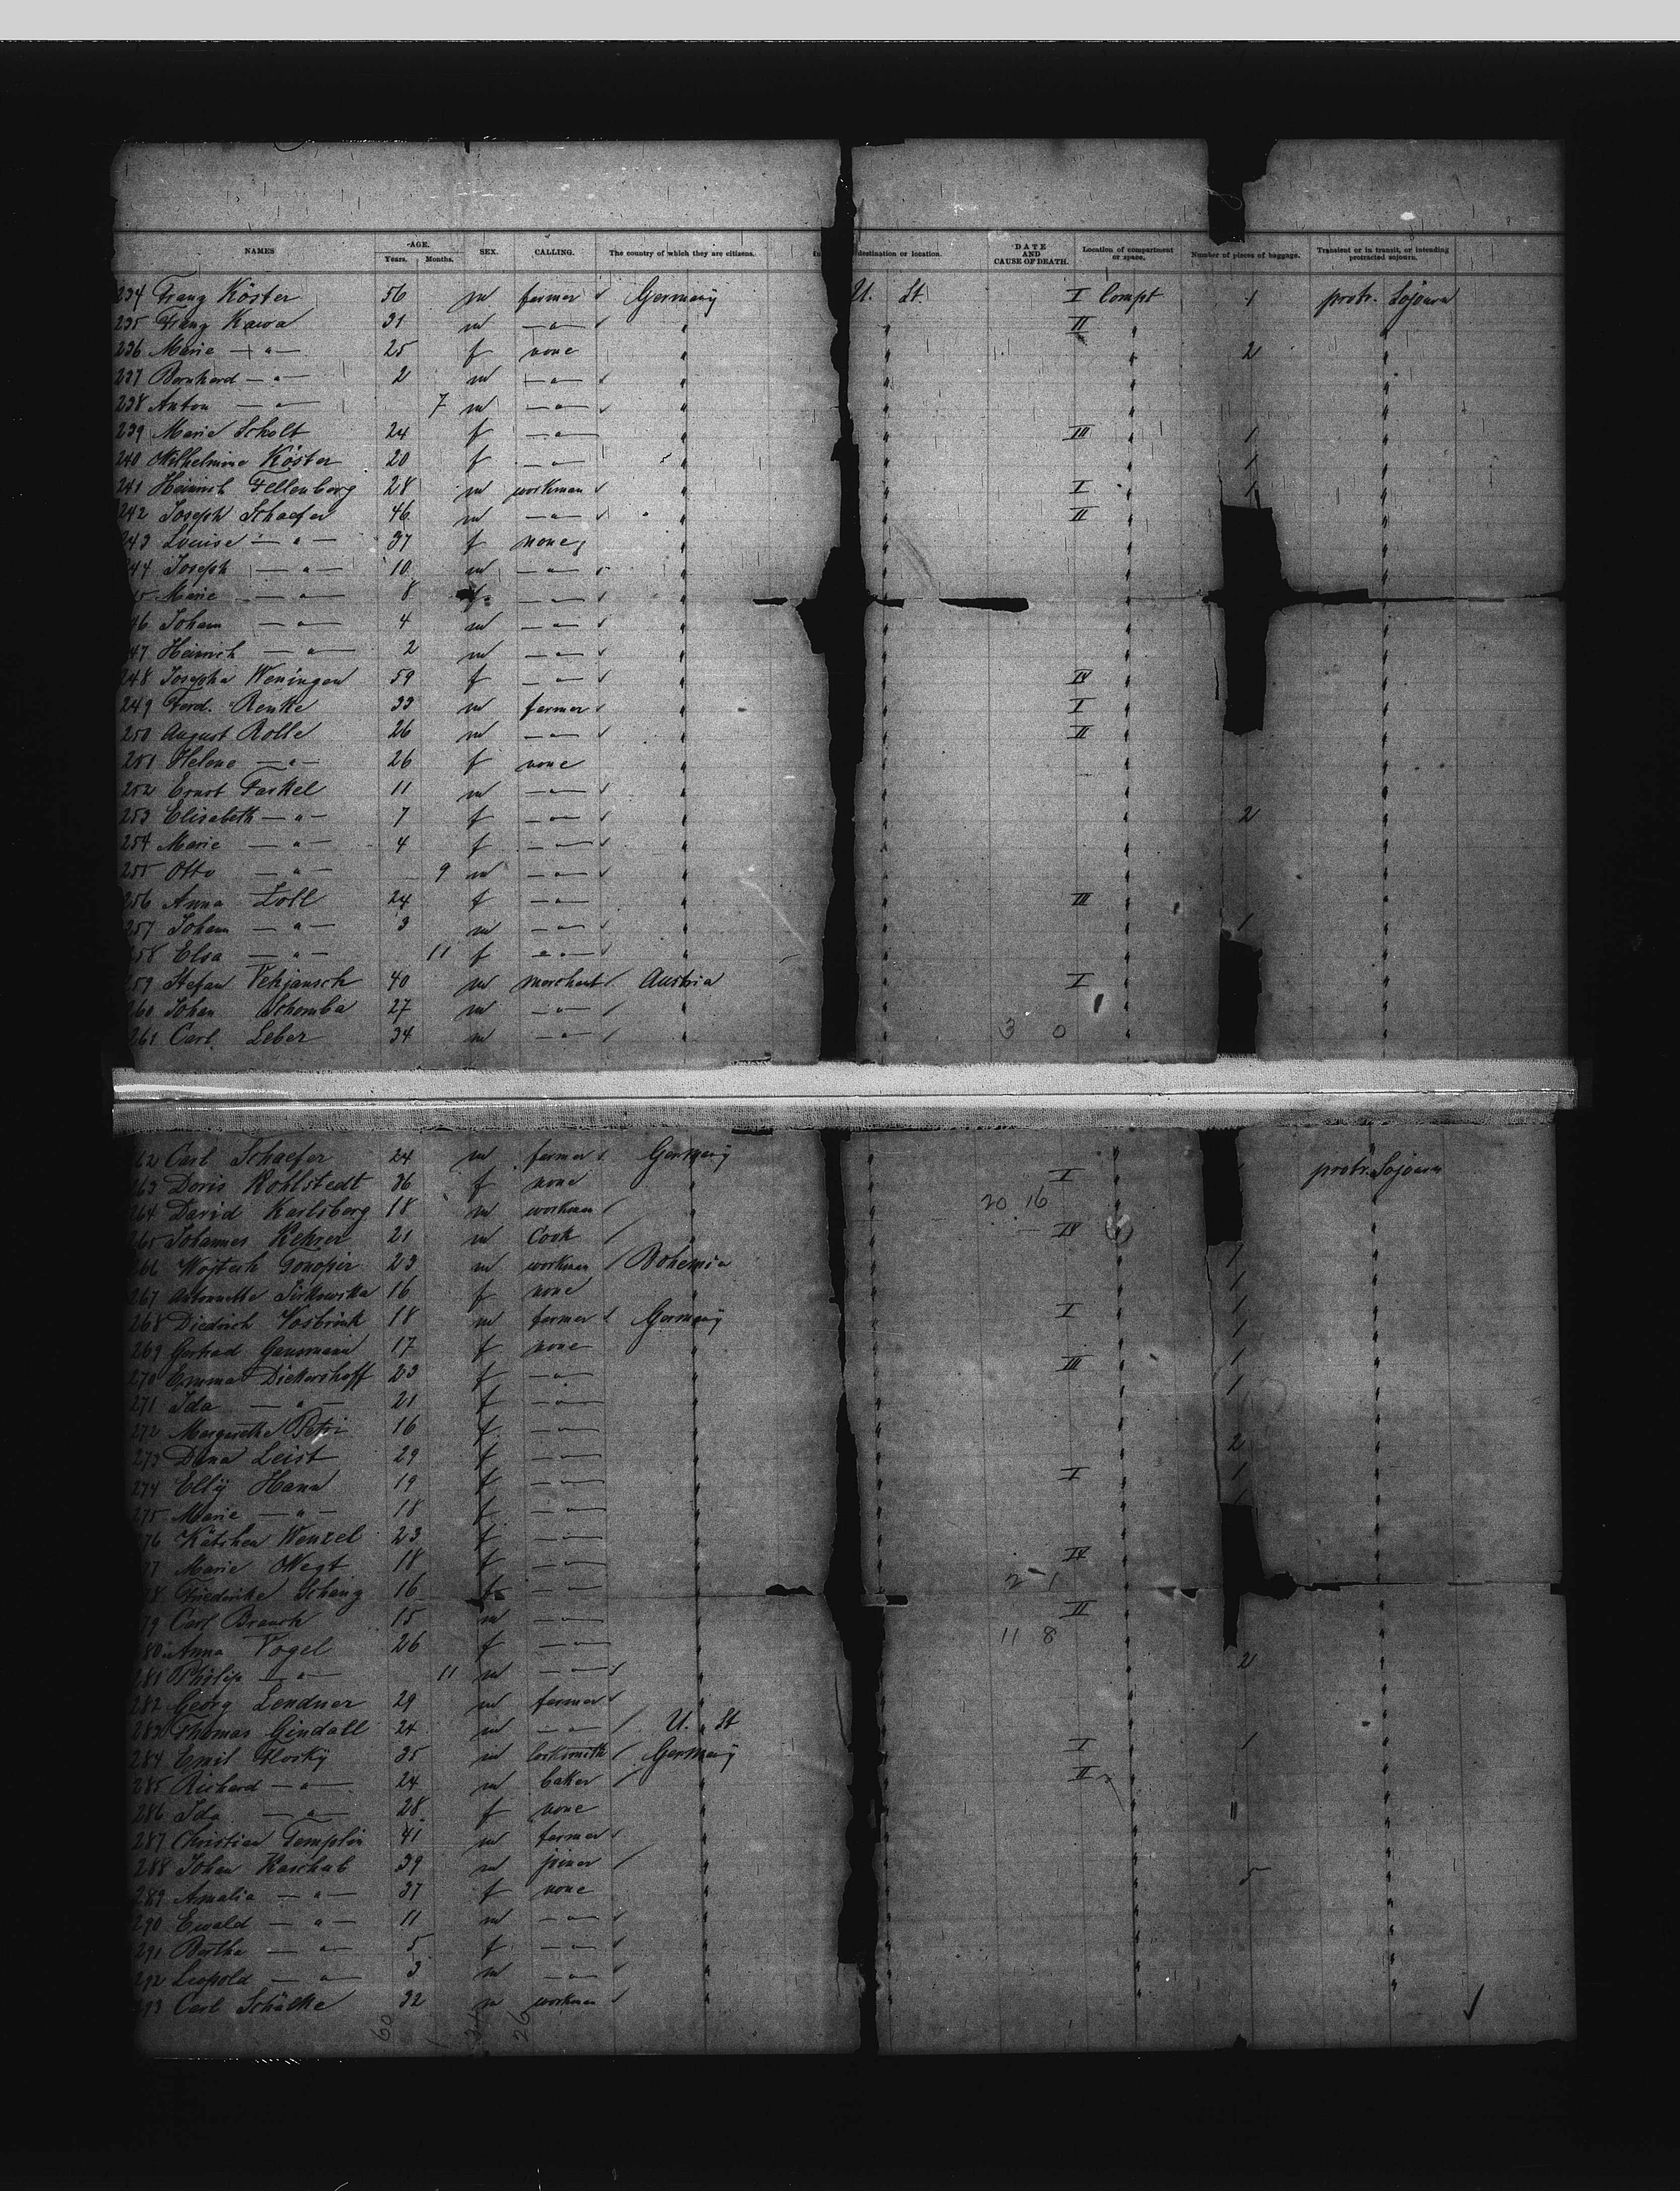 NAMES AGE. Years. Months. SEX. CALLING. The country of which they are citizens. destination or location. DATE AND CAUSE OF DEATH. Location of compartment or space. Number of pieces of baggage. Transient or in transit, or intending protracted sojourn.
234 Franz Köster 56 m farmer Germany U. St. I Compt 1 protr. Sojourn
235 Franz Kawa 31 m —"— " " II " "
236 Marie —"— 25 f none " " " 2 "
237 Bernhard —"— 2 m —"— " " " "
238 Anton —"— 7 m —"— " " " "
239 Marie Scholt 24 f —"— " " III " 1 "
240 Wilhelmine Köster 20 f —"— " " " 1 "
241 Heinrich Fellenberg 28 m workman " " I " 1 "
242 Joseph Schaefer 46 m —"— " " II " "
243 Louise —"— 37 f none " " " "
44 Joseph —"— 10 m —"— " " " "
5 Marie —"— 8 f —"— " " " "
46 Johann —"— 4 m —"— " " " "
47 Heinrich —"— 2 m —"— " " " "
248 Josepha Weningen 59 f —"— " " IV " "
249 Ferd. Renke 33 m farmer " " I " "
250 August Rolle 26 m —"— " " II " "
251 Helene —"— 26 f none " " " "
252 Ernst Faskel 11 m —"— " " " "
253 Elisabeth —"— 7 f —"— " " " 2 "
254 Marie —"— 4 f —"— " " " "
255 Otto —"— 9 m —"— " " " "
256 Anna Zoll 24 f —"— " " III " "
257 Johann —"— 3 m —"— " " " 1 "
58 Elsa —"— 11 f —"— " " " "
259 Stefan 40 m merchant Austria " I " "
260 Johan Schomba 27 m —"— " " " "
261 Carl Leber 34 m —"— " " 3 0 " "
62 Carl Schaefer 24 m farmer Germany " " protr. Sojourn
263 Doris Kohlstedt 36 f none " " I " "
264 David Karlsberg 18 m workman " " 20 16 " "
265 Johannes Kehrer 21 m Cook " " IV " "
266 Wojtech 23 m workman Bohemia " " 1 "
267 Antonnette 16 f none " " " 1 "
268 Diedrich Vosbrink 18 m farmer Germany " I " 1 "
269 Gertrud Gausmann 17 f none " " " 1 "
270 Emma Dickershoff 23 f —"— " " III " 1 "
271 Ida —"— 21 f —"— " " " 1 "
272 Margarethe Petri 16 f —"— " " " "
273 Dina Leist 29 f —"— " " " 2 "
274 Elly Hann 19 f —"— " " I " 1 "
275 Marie —"— 18 f —"— " " " 1 "
76 Kätchen Wenzel 23 f —"— " " " "
77 Marie Wegt 18 f —"— " " IV " "
78 Friedericke Schang 16 f —"— " " 2 1 " "
79 Carl Brauch 15 m —"— " " II " "
80 Anna Vogel 26 f —"— " " 11 8 " "
281 Philip —"— 11 m —"— " " " 2 "
282 Georg Lendner 29 m farmer " " " "
283 Thomas Gindall 24 m —"— U. St " " "
284 Emil Hosky 35 m locksmith Germany " I " 1 "
285 Richard —"— 24 m baker " " II " "
286 Ida —"— 28 f none " " " "
287 Christian Templin 41 m farmer " " " "
288 Johan Kaschub 39 m joiner " " " 5 "
289 Amalia —"— 37 f none " " " "
290 Ewald —"— 11 m —"— " " " "
291 Bertha —"— 5 f —"— " " " "
292 Leopold —"— 3 m —"— " " " "
293 Carl Schälke 32 m workman " " " "
60 1 26